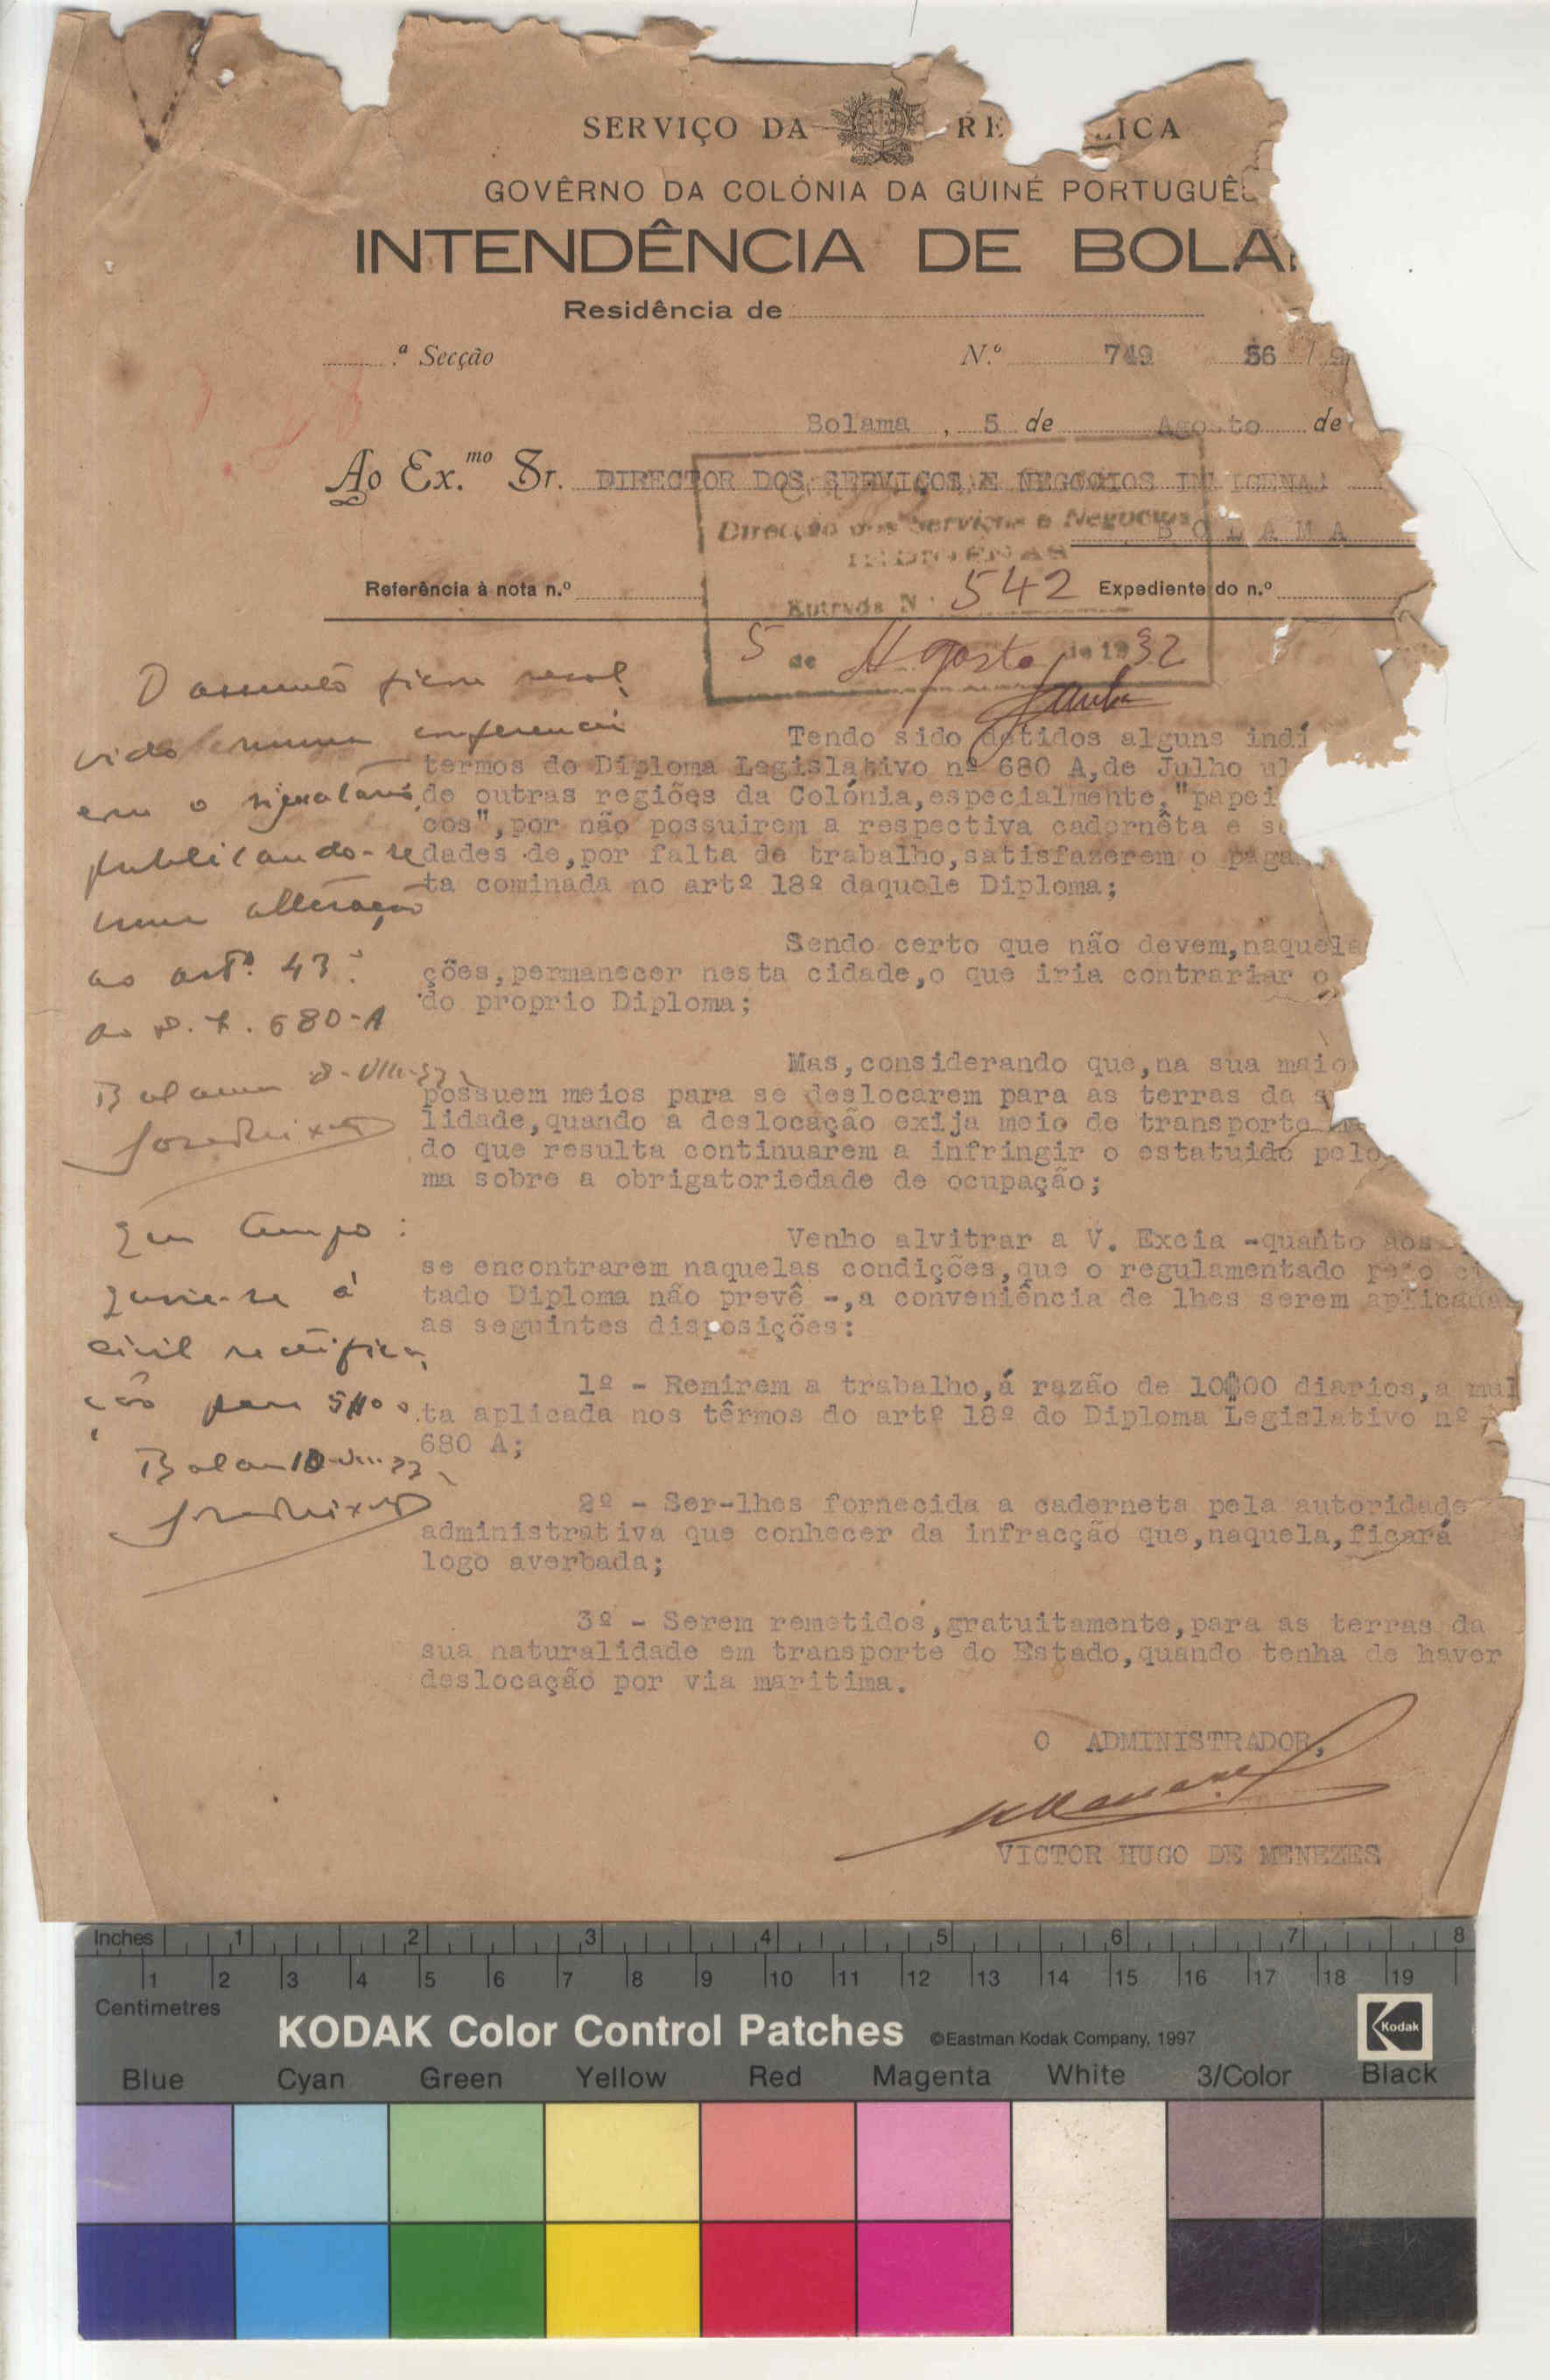 SERVIÇO DA RE LICA
GOVÊRNO DA COLÓNIA DA GUINÉ PORTUGUÊ
INTENDÊNCIA DE BOLA
Residência de
.ª Secção
N.º 749 56
Bolama , 5 de Agosto de
Ao Ex.mo Sr. DIRECTOR DOS SERVIÇOS E NEGOCIOS IN IGENA
BOLAMA
Direcção dos Serviços e Negocios
INDIGENAS
Entrada N.º 542
5 de Agosto de 1932
Referência à nota n.º
Expediente do n.º
O assunto ficou resol
vido numa conferencia
com o signatario,
publicando-se
uma alteração
ao artº. 43º
do D. L. 680-A
Bolama 8-VIII-32
Em tempo:
á
civil rectifica
ção para 5$00.
Bolama 10-VIII-32
Tendo sido detidos alguns indí
termos do Diploma Legislativo nº 680 A,de Julho ul
de outras regiões da Colónia,especialmente,"papei
cos",por não possuirem a respectiva cadernêta e s
dades de,por falta de trabalho,satisfazerem o paga
ta cominada no artº 18º daquele Diploma;
Sendo certo que não devem,naquela
ções,permanecer nesta cidade,o que iria contrariar o
do proprio Diploma;
Mas,considerando que,na sua maio
possuem meios para se deslocarem para as terras da s
lidade,quando a deslocação exija meio de transporte ma
do que resulta continuarem a infringir o estatuido pelo
ma sobre a obrigatoriedade de ocupação;
Venho alvitrar a V. Excia -quanto aos
se encontrarem naquelas condições,que o regulamentado pelo ci
tado Diploma não prevê -,a conveniência de lhes serem aplicadas
as seguintes disposições:
1º - Remirem a trabalho,á razão de 10$00 diarios,a mul
ta aplicada nos têrmos do artº 18º do Diploma Legislativo nº
680 A;
2º - Ser-lhes fornecida a caderneta pela autoridade
administrativa que conhecer da infracção que,naquela,ficará
logo averbada;
3º - Serem remetidos,gratuitamente,para as terras da
sua naturalidade em transporte do Estado,quando tenha de haver
deslocação por via maritima.
O ADMINISTRADOR,
VICTOR HUGO DE MENEZES
Inches 1 2 3 4 5 6 7 8
1 2 3 4 5 6 7 8 9 10 11 12 13 14 15 16 17 18 19
Centimetres
KODAK Color Control Patches ©Eastman Kodak Company, 1997 Kodak
Blue Cyan Green Yellow Red Magenta White 3/Color Black